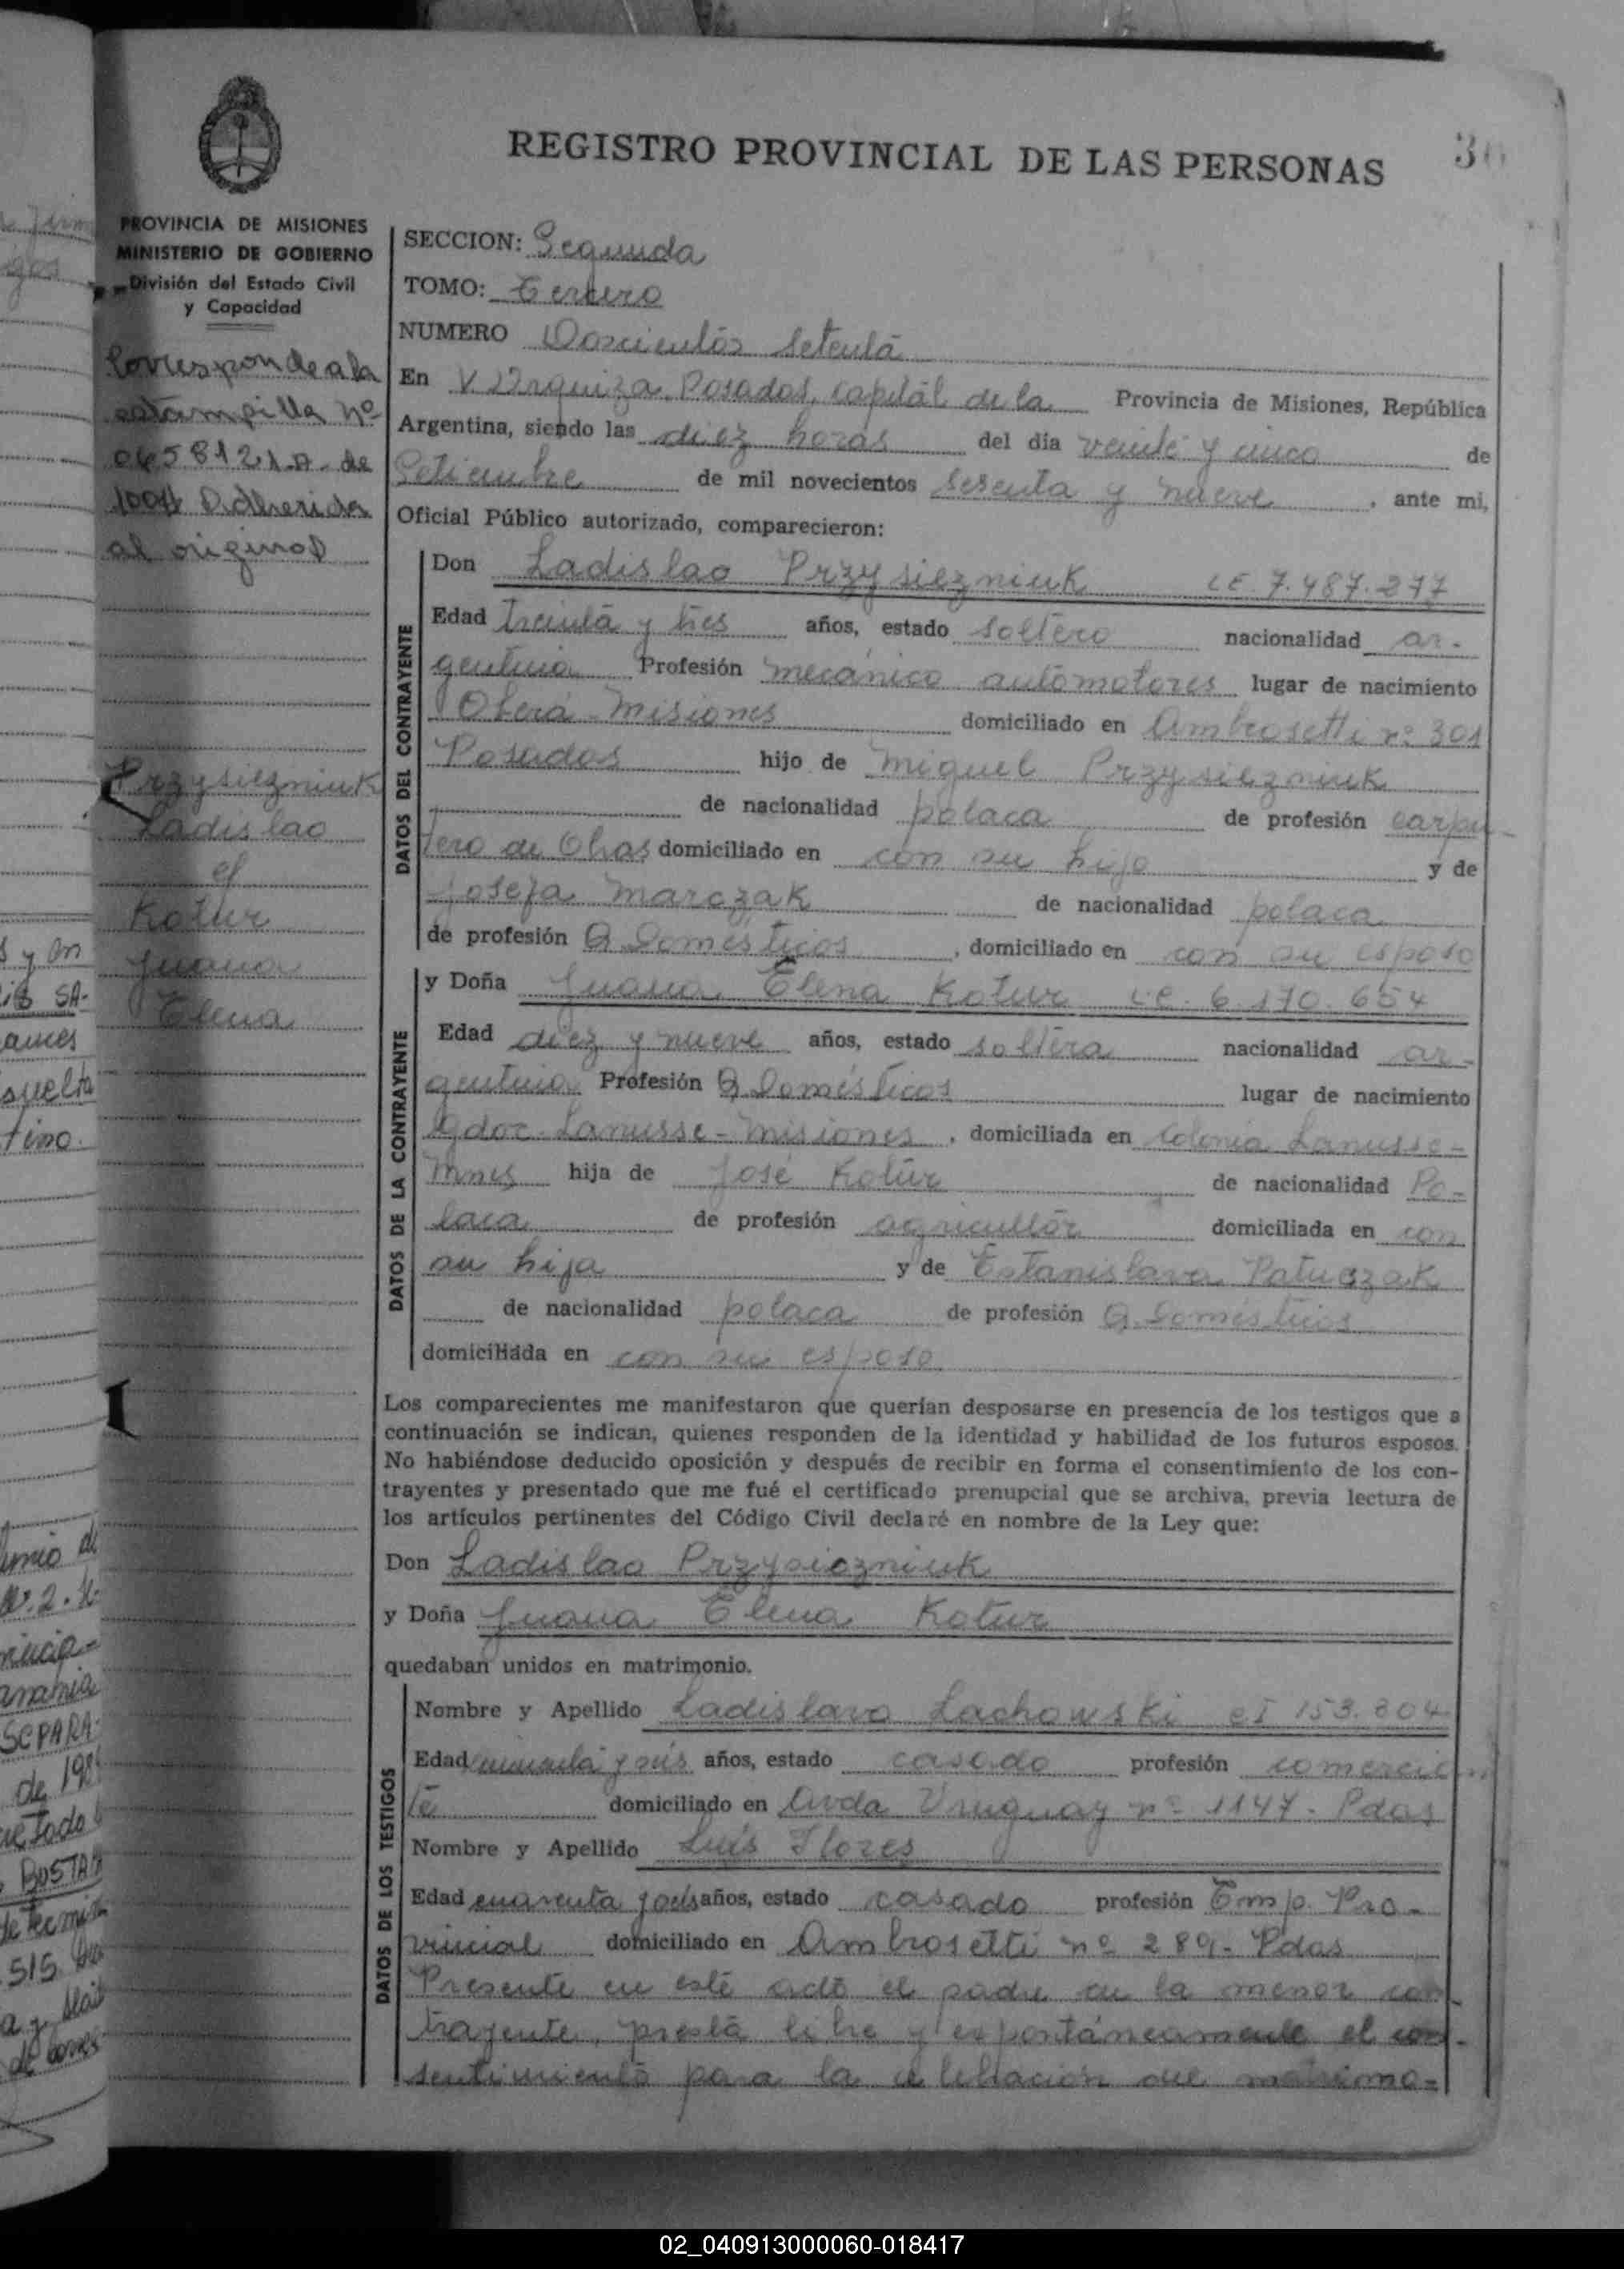 REGISTRO PROVINCIAL DE LAS PERSONAS
PROVINCIA DE MISIONES
MINISTERIO DE GOBIERNO
División del Estado Civil
y Capacidad
Corresponde a la
estampilla nº
de
Adherida
al original
Przysiezniuk
Ladislao
Kotur
Juana
Elena
SECCION: Segunda
TOMO: Tercero
NUMERO Doscientos setenta
En V Urquiza, Posadas, capital de la Provincia de Misiones, República
Argentina, siendo las diez horas del día veinte y cinco de
Setiembre de mil novecientos sesenta y nueve, ante mi,
Oficial Público autorizado, comparecieron:
DATOS DEL CONTRAYENTE
Don Ladislao Przysiezniuk LE. 7.487.277
Edad treinta y tres años, estado soltero nacionalidad ar-
gentina Profesión mecánico automotores lugar de nacimiento
Oberá - Misiones domiciliado en Ambrosetti nº 301
Posadas hijo de Miguel Przysiezniuk
de nacionalidad polaca de profesión carpin-
tero de Obras domiciliado en con su hijo y de
Josefa Marczak de nacionalidad polaca
de profesión Q. Domésticos, domiciliado en con su esposo
DATOS DE LA CONTRAYENTE
y Doña Juana Elena Kotur L.C. 6.170.654
Edad diez y nueve años, estado soltera nacionalidad ar-
gentina Profesión Q. Domésticos lugar de nacimiento
Gdor. Lanusse - Misiones, domiciliada en Colonia Lanusse -
Mnes hija de José Kotur de nacionalidad Po-
laca de profesión agricultor domiciliada en con
su hija y de Estanislava Patuczak
de nacionalidad polaca de profesión Q. Domésticos
domiciliada en con su esposo
Los comparecientes me manifestaron que querían desposarse en presencia de los testigos que a
continuación se indican, quienes responden de la identidad y habilidad de los futuros esposos.
No habiéndose deducido oposición y después de recibir en forma el consentimiento de los con-
trayentes y presentado que me fué el certificado prenupcial que se archiva, previa lectura de
los artículos pertinentes del Código Civil declaré en nombre de la Ley que:
Don Ladislao Przysiezniuk
y Doña Juana Elena Kotur
quedaban unidos en matrimonio.
DATOS DE LOS TESTIGOS
Nombre y Apellido Ladislavo Lachowski CI 153.304
Edad años, estado casado profesión comercian
te domiciliado en Avda Uruguay nº 1147 - Pdas
Nombre y Apellido Luis Flores
Edad cuarenta y años, estado casado profesión Emp. Pro-
vincial domiciliado en Ambrosetti nº 289 - Pdas
Presente en este acto el padre de la menor con-
trayente, presta libre y espontáneamente el con-
sentimiento para la celebración del matrimo-
02_040913000060-018417